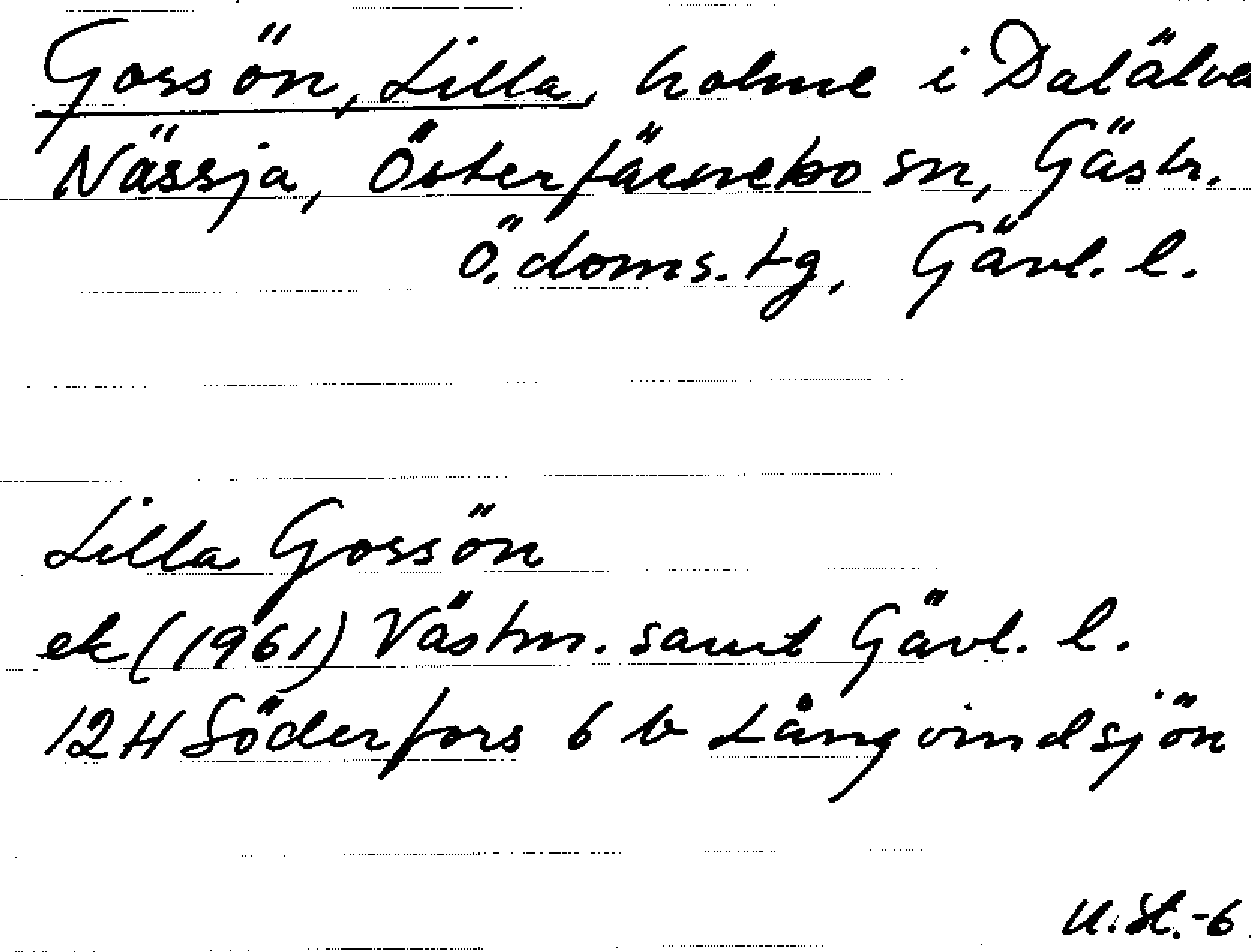 Gossön, Lilla, holme i Dalälve
Nässja, Österfärnebo sn, Gästr.
Ö. doms. tg, Gävl. l.
Lilla Gossön
ek (1961) Västm. samt Gävl. l.
12H Söderfors 6 b Långvindsjön
U. St. -6